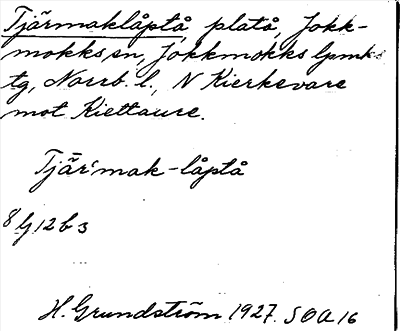 Tjärmaklåptå platå, Jokk-
mokks sn, Jokkmokks lpmks
tg, Norrb. l., N Kierkevare
mot Kiettaure.
Tjär'mak-låptå
8 G 12 b 3
H. Grundström 1927. SOA 16